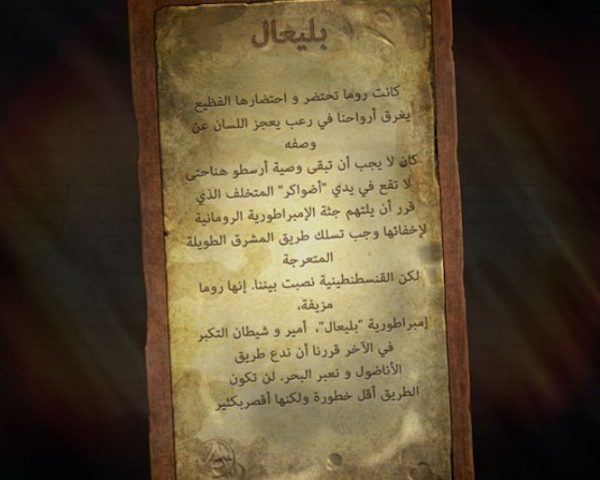 بليعال
كانت روما تحتضر و احتضارها الفظيع
يغرق أرواحنا في رعب يعجز اللسان عن
وصفه
كان لا يجب أن تبقى وصية أرسطو هناحتى
لا تقع في يدي "أضواكر" المتخلف الذي
قرر أن يلتهم جثة الإمبراطورية الرومانية
لإخفائها وجب تسلك طريق المشرق الطويلة
المتعرجة
لكن القنسطنطينية نصبت بيننا. إنها روما
مزيفة،
إمبراطورية "بليعال"، أمير و شيطان التكبر
في الآخر قررنا أن ندع طريق
الأناضول و نعبر البحر. لن تكون
الطريق أقل خطورة ولكنها أقصربكثير